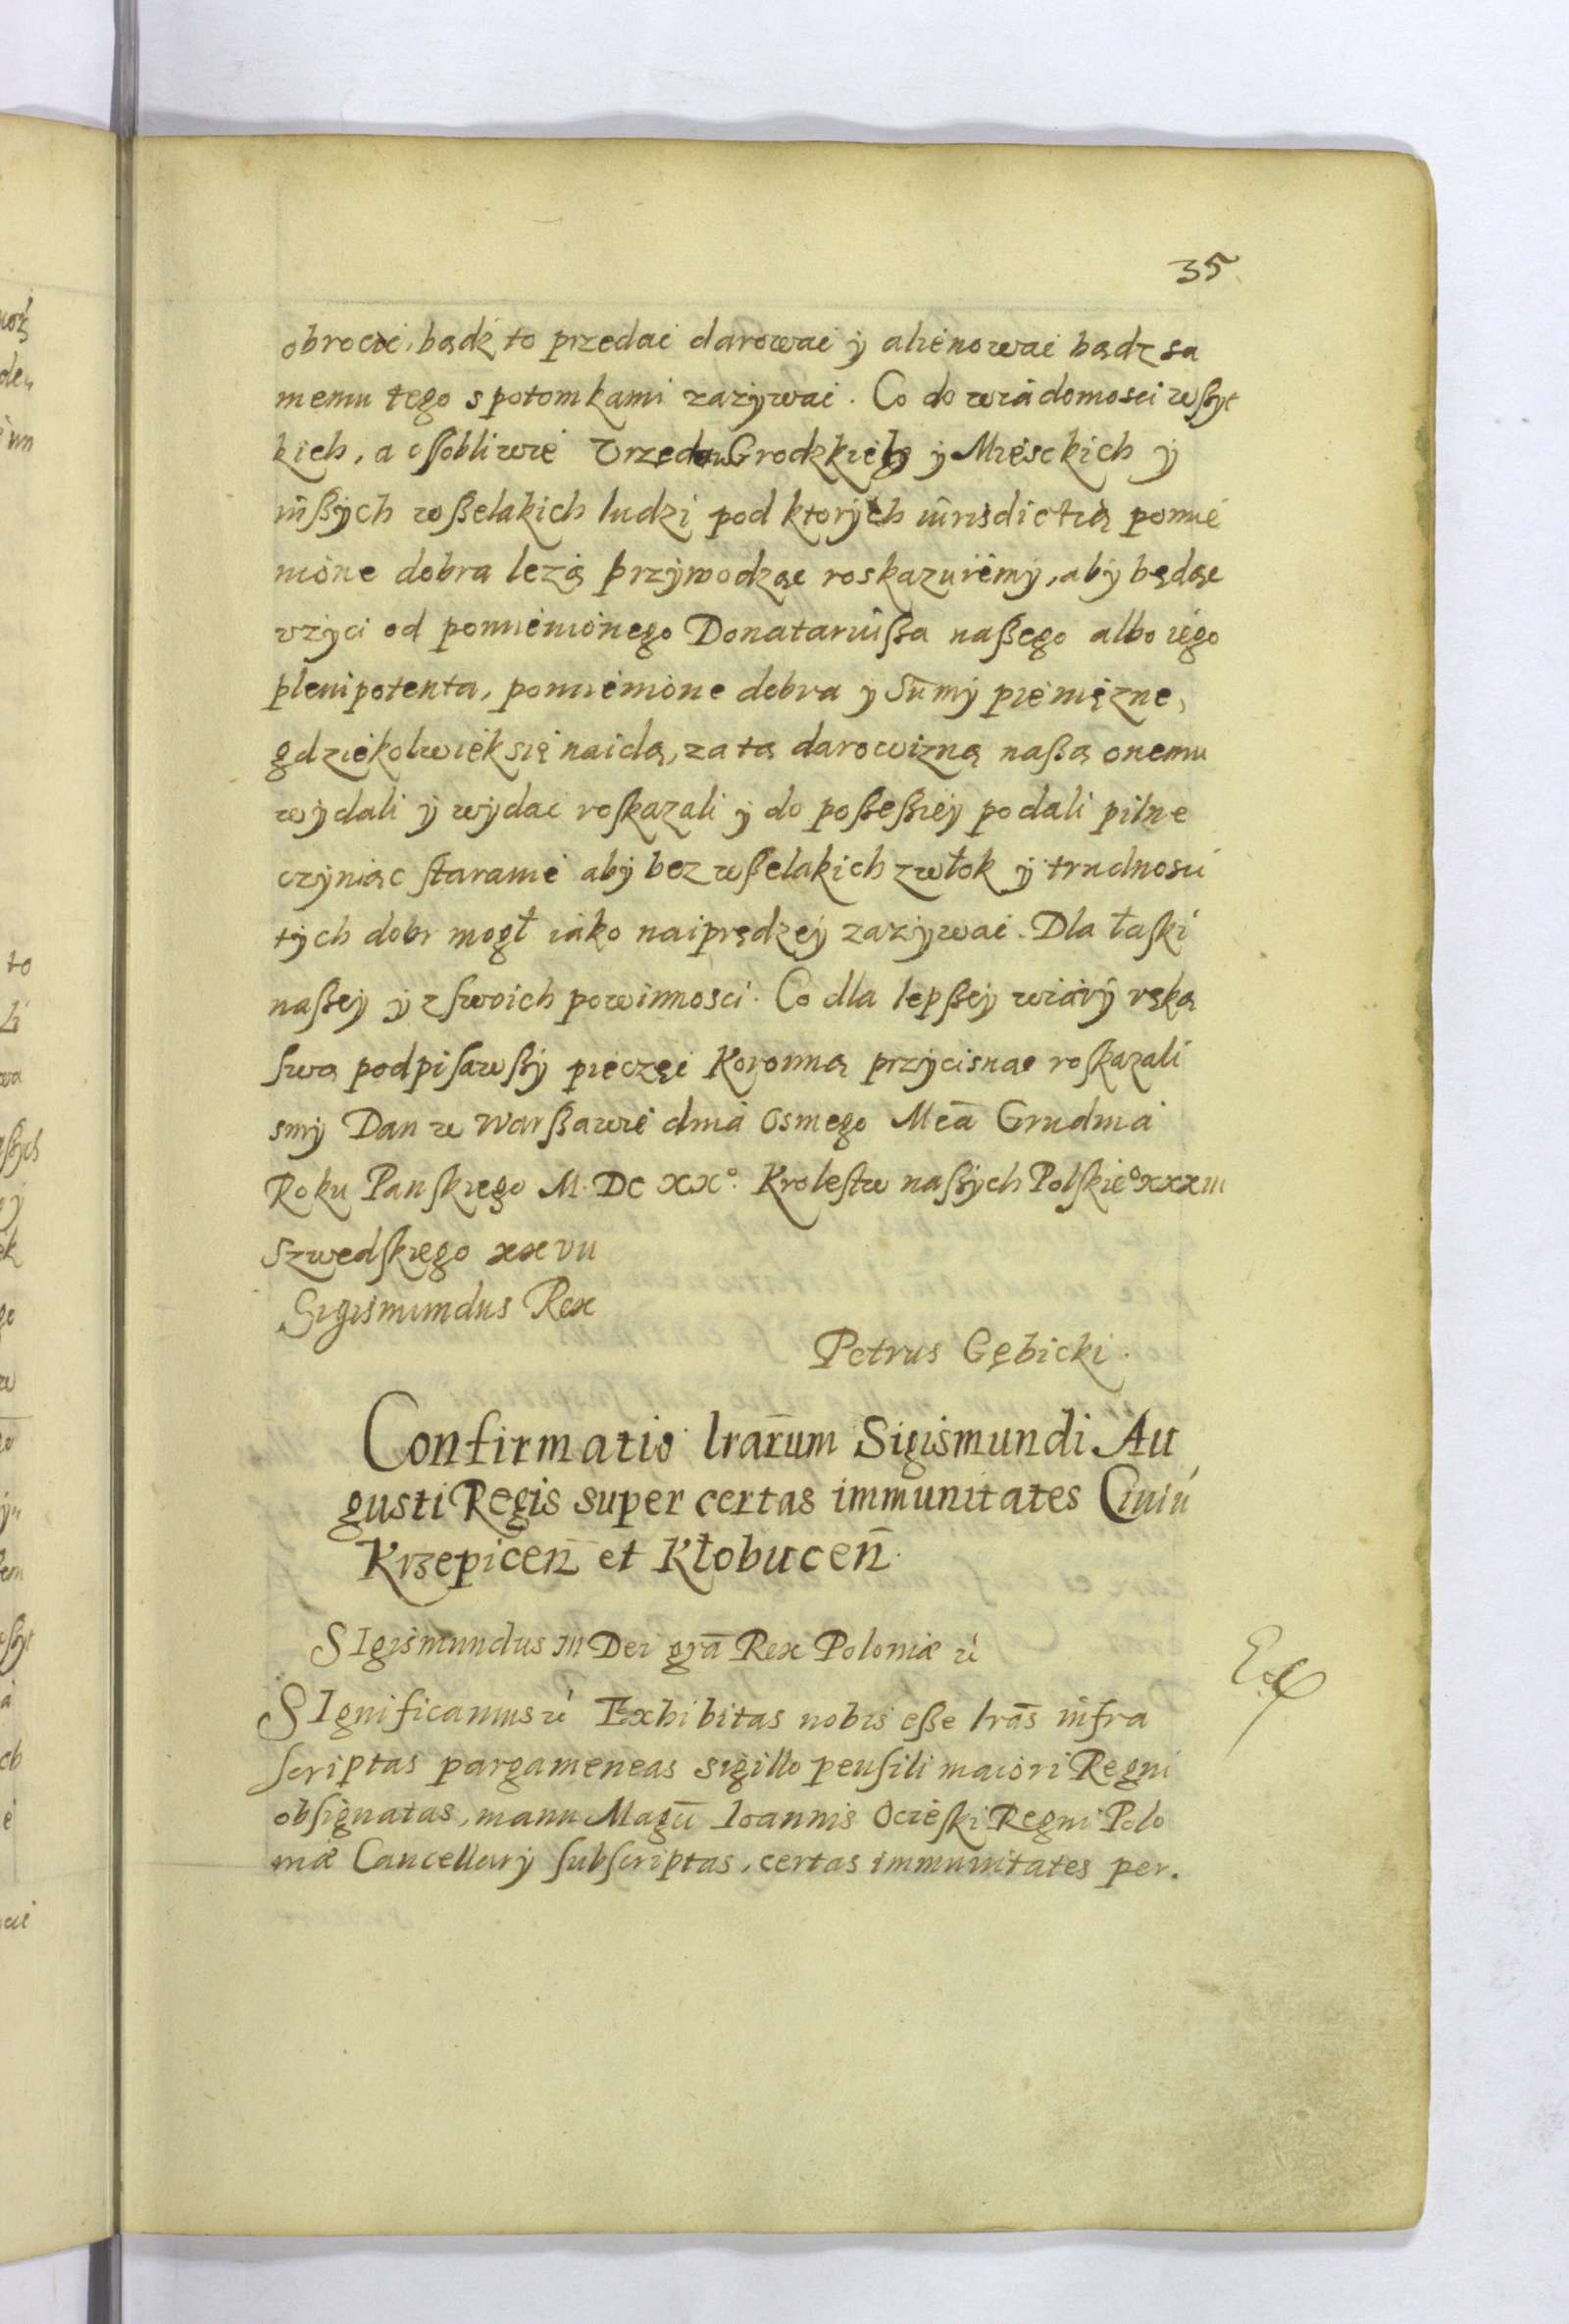 35
obrocić, bądź to przedać darować ÿ alienować bądz sa
memu tego s potomkami zazÿwać. Co do wiadomosci wßÿt
kich, a ossobliwie Vrzędow Grodzkich ÿ Mieÿsckich ÿ
inßÿch wßelakich ludzi pod ktorÿch iurisdictią pomie
nione dobra lezą przÿwodząc roskazuiemÿ, abÿ będąc
vzÿci od pomienionego Donatariußa naßego albo iego
plenipotenta, pomienione dobra ÿ Sum̄ÿ pieniężne,
gdziekolwiek się naidą, za tą darowizną naßą onemu
wÿdali ÿ wÿdać roskazali ÿ do poßeßieÿ podali pilne
czÿniąc staranie abÿ bez wßelakich zwłok ÿ trudnosci
tÿch dobr mogł iako naiprędzeÿ zazÿwać. Dla łaski
naßeÿ ÿ z swoich powinnosci. Co dla lepßeÿ wiarÿ ręką
swą podpisawßÿ pieczęć Koronną przÿcisnąc roskazali
smÿ Dan w Warßawie dnia Osmego Mcā Grudnia
Roku Panskiego M. DC XX° Krolestw naßÿch Polskie° xxxiii
Szwedskiego xxvii
Sigismundus Rex
Petrus Gębicki.
Confirmatio lrārum Sigismundi Au
gusti Regis super certas immunitates Ciuiū
Krzepiceñ et Kłobuceñ
SIgismundus III Dei grā Rex Poloniæ &c
SIgnificamus &c Exhibitas nobis eße lrās infra
scriptas pargameneas sigillo pensili maiori Regni
obsignatas, manu Magci Ioannis Ocieski Regni Polo
niæ Cancellarÿ subscriptas, certas immunitates per.